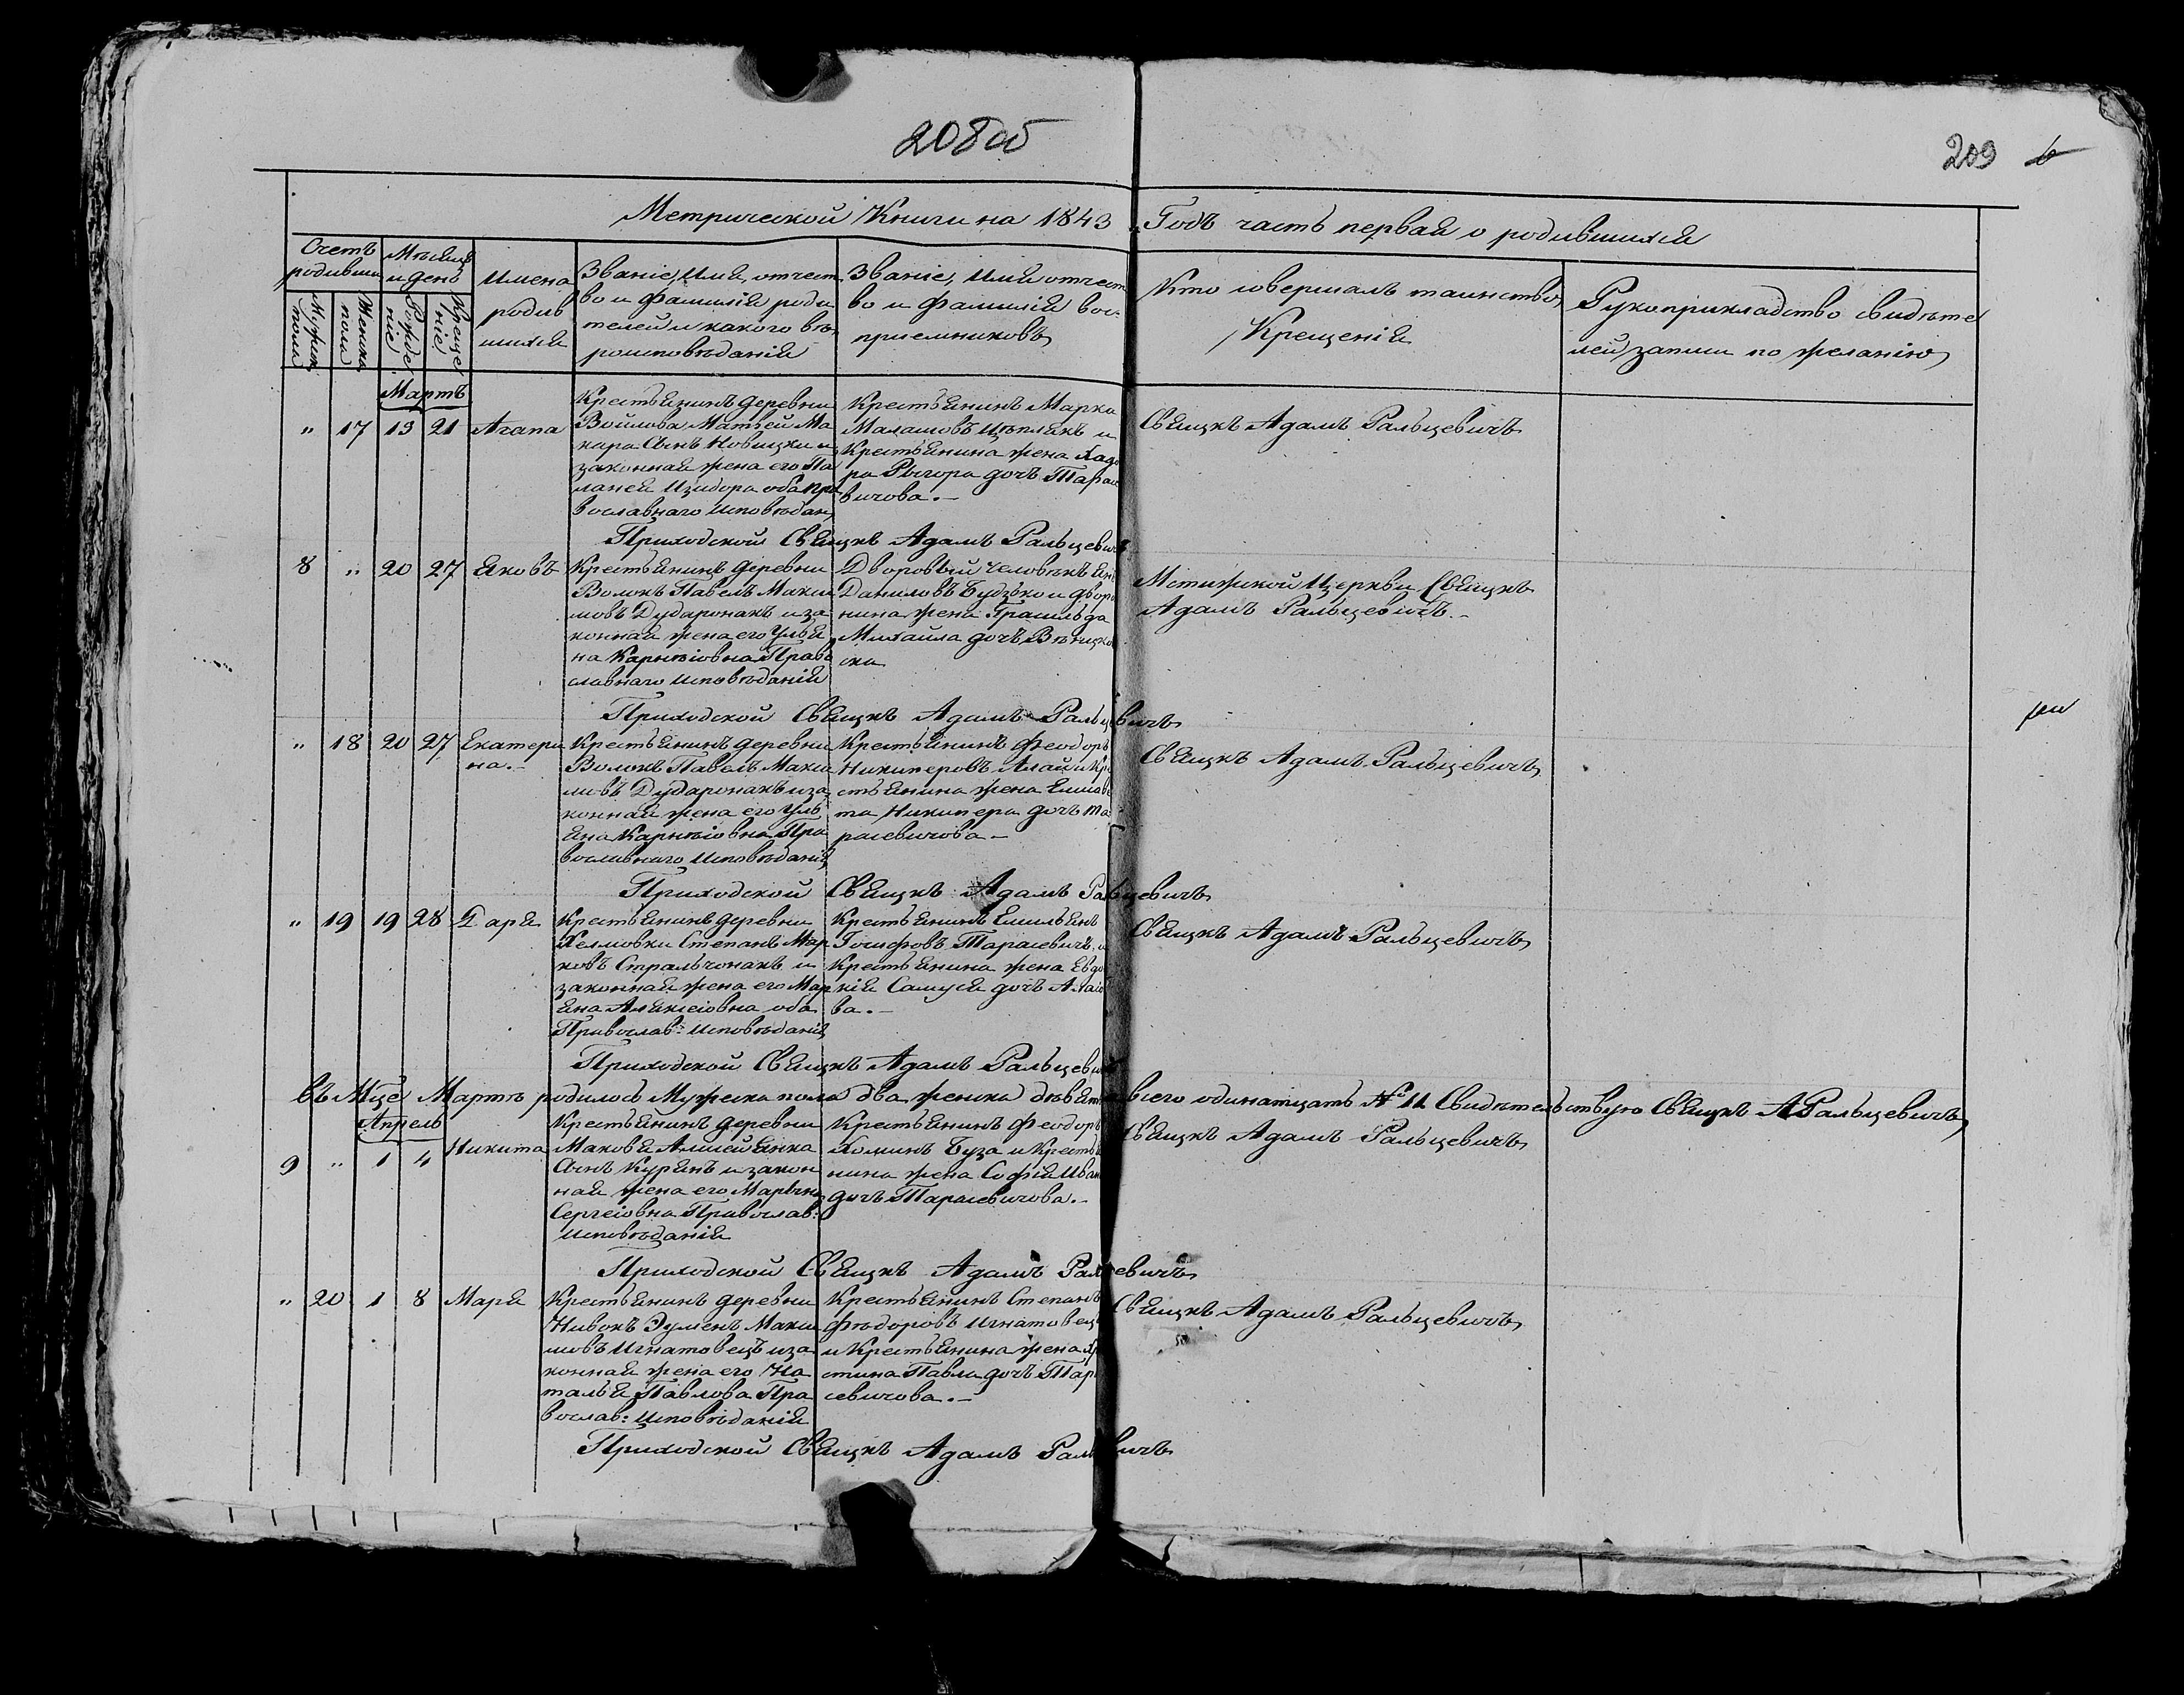 208об
209 6
Метрической Книги на 1843 Годъ часть первая о родившихся
Счетъ родивши
Мѣсяцъ и день
Имена родив шихся
Званіе, Имя, отчест во и фамилія роди телей и какого вѣ роисповѣданія
Званіе, Имя отчест во и фамилія вос приемниковъ
Кто совершалъ таинство Крещенія
Рукоприкладство свидѣте лей записи по желанію
Мужеска пола
Женска пола
Рожде ніе
Креще ніе
Мартъ
" 17 13 21 Агапа
Крестьянинъ деревни
Войлова Матѣей Ма
кара Сынъ Новицки и
законная жена его Па
ланея Изидора оба Пра
вославнаго Исповѣдан
Крестьянинъ Марко
Малашовъ Цѣплякъ и
Крестьянина жена Хадо
ра Рыгора дочъ Тарас
вичова.-
Свящкъ Адамъ Ральцевичъ
Приходской Свящкъ Адамъ Ральцевичъ
8 " 20 27 Яковъ
Крестьянинъ деревни
Волокъ Павелъ Макси
мовъ Дударонакъ и за
конная жена его Улья
на Карнѣіовна Право
славнаго Исповѣданія
Дворовый Человѣкъ Ян
Даниловъ Будзько и дворя
нина жена Грасильда
Михаила дочъ
ска
Мстижской Церкви Свящкъ
Адамъ Ральцевичъ.-
Приходской Свящкъ Адамъ Ральцевичъ
" 18 20 27 Екатери
на.-
Крестьянинъ деревни
Волокъ Павелъ Макси
мовъ Дударонакъ и за
конная жена его Уль
яна Карнѣіовна Пра
вославнаго Исповѣданія
Крестьянинъ Феодоръ
Никиперовъ Алай и Кре
стьянина жена Елисаве
та Никипера дочъ Та
расевичова-
Свящкъ Адамъ Ральцевичъ
реи
Приходской Свящкъ Адамъ Ральцевичъ
" 19 19 28 Даря
Крестьянинъ деревни
Хелмовки Степанъ Мар
ковъ Стральчонакъ и
законная жена его Мар
яна Алексіовна оба
Православ: Исповѣданія
Крестьянинъ Емильянъ
Іосифовъ Тарасевичъ и
Крестьянина жена Евдо
кія Самуся дочъ Алаіо
ва.-
Свящкъ Адамъ Ральцевичъ
Приходской Свящкъ Адамъ Ральцевичъ
Въ Мцѣ Мартѣ родилось Мужеска пола два женска девять всего одинатцать № 11 Свидѣтельствую Свящкъ АРальцевичъ
Апрель
9 " 1 4 Никита
Крестьянинъ деревни
Маковя Алисей Янка
Сынъ Курянъ и закон
ная жена его Марьяна
Сергеіовна Православ:
Исповѣданія
Крестьянинъ Феодоръ
Хоминъ Буза и Крестья
нина жена Софія Ивана
дочъ Тарасевичова.-
Свящкъ Адамъ Ральцевичъ
Приходской Свящкъ Адамъ Ральцевичъ
" 20 1 8 Маря
Крестьянинъ деревни
Нивокъ Эуменъ Макси
мовъ Игнатовецъ и за
конная жена его На
талья Павлова Пра
вослав: Исповѣданія
Крестьянинъ Степанъ
Фѣдоровъ Игнатовецъ
и Крестьянина жена Хр
стина Павла дочъ Тар
севичова.-
Свящкъ Адамъ Ральцевичъ
Приходской Свящкъ Адамъ Ральцевичъ